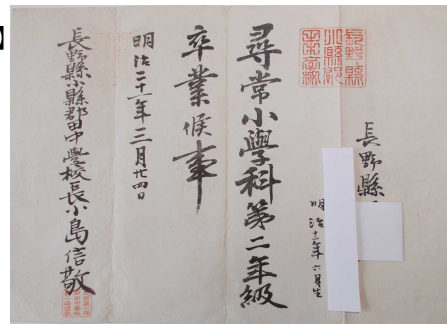 長野縣
明治十二年六月生
尋常小學科第二年級
卒業候事
明治二十一年三月廿四日
長野縣小縣郡田中學校長小島信敬